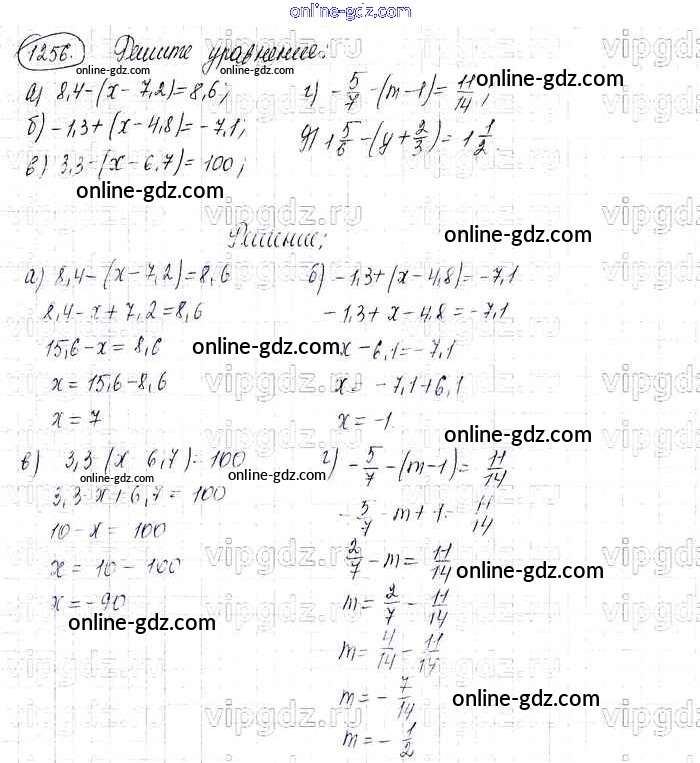 online-gdz.com
1256. Решите уравнение:
а) 8,4-(x-7,2)=8,6;
б) -1,3+(x-4,8)=-7,1;
в) 3,3-(x-6,7)=100;
г) -5/7-(m-1)=11/14;
д) 1 5/6-(y+2/3)=1 1/2.
Решение:
а) 8,4-(x-7,2)=8,6
8,4-x+7,2=8,6
15,6-x=8,6
x=15,6-8,6
x=7
б) -1,3+(x-4,8)=-7,1
-1,3+x-4,8=-7,1
x-6,1=-7,1
x=-7,1+6,1
x=-1.
в) 3,3 (x 6,7)=100
3,3 x+6,7=100
10-x=100
x=10-100
x=-90
г) -5/7-(m-1)=11/14
-5/7-m+1=11/14
2/7-m=11/14
m=2/7-11/14
m=4/14-11/14
m=-7/14
m=-1/2
online-gdz.com
online-gdz.com
online-gdz.com
online-gdz.com
online-gdz.com
online-gdz.com
online-gdz.com
online-gdz.com
online-gdz.com
online-gdz.com
online-gdz.com
online-gdz.com
vipgdz.ru
vipgdz.ru
vipgdz.ru
vipgdz.ru